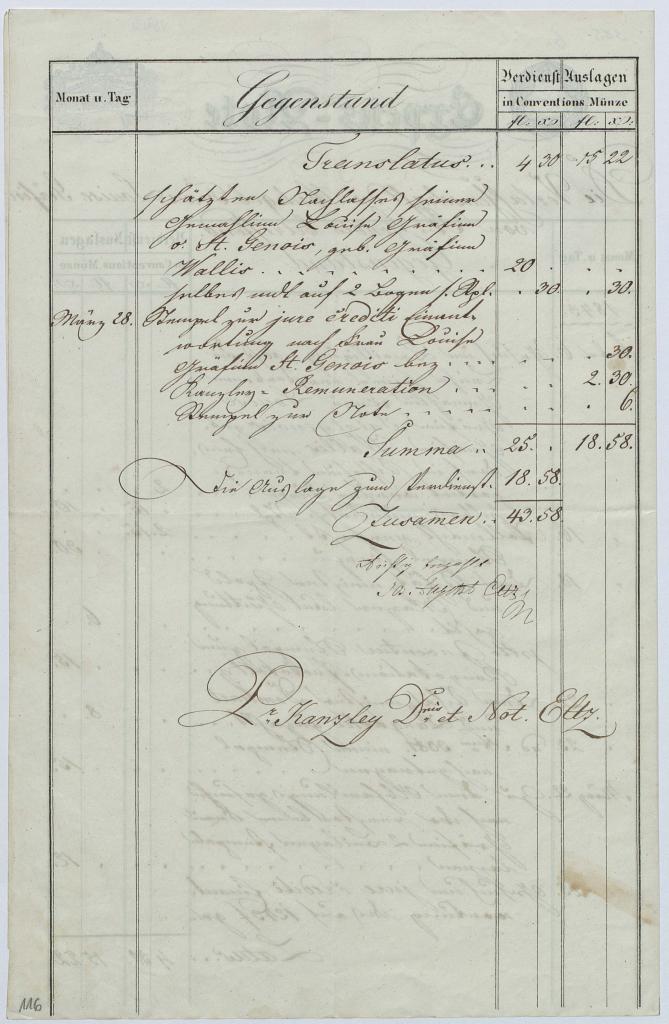 Monat u. Tag Gegenstand Verdienst Auslagen
in Conventions Münze
fl: xr fl: xr:
Translatus... 4 30 15 22
schätzten Nachlasses seiner
Gemahlinn Louise Gräfinn
v. St. Genois, geb. Gräfinn
Wallis . . . . . . . . 20 . . .
selbes mdt auf 2 Bogen s. Stpl. . 30. . 30.
März 28. Stempel zur jure crediti Einant-
wortung nach Frau Louise
Gräfinn St. Genois bez. . . . . . . 30.
Kanzley-Remuneration . . . . 2. 30.
Stempel zur Note . . . . . . . . 6.
Summa .. 25. . 18. 58.
Die Auslage zum Verdienst. 18. 58.
Zusamen. . 43. 58.
Eltz
Pr. Kanzley Dris et Not. Eltz.
116